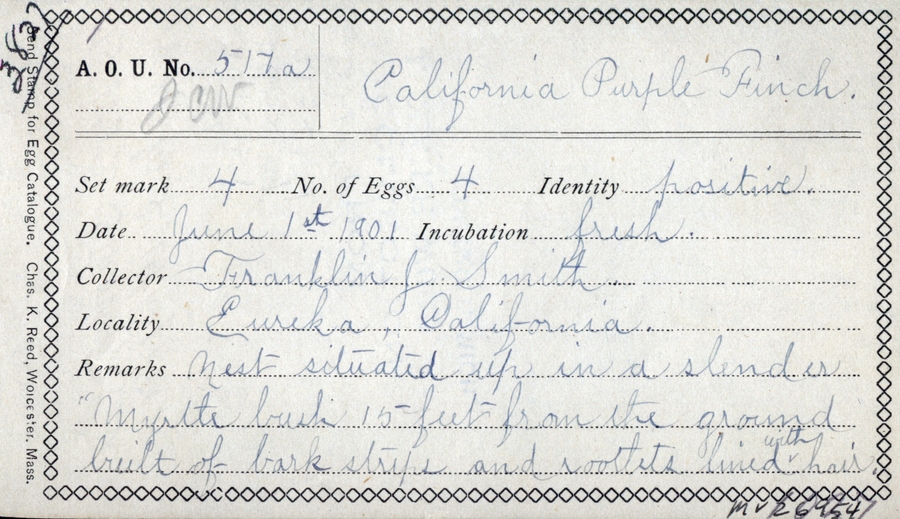 A. O. U. No. 517a
California Purple Finch.
JCW
Set mark 4 No. of Eggs 4 Identity positive.
Date June 1st 1901 Incubation fresh.
Collector Franklin J. Smith
Locality Eureka, California.
Remarks Nest situated up in a slender
"Myrtle bush 15 feet from the ground
built of bark strips and rootlets lined with hair.
Send Stamp for Egg Catalogue. Chas. K. Reed, Worcester, Mass.